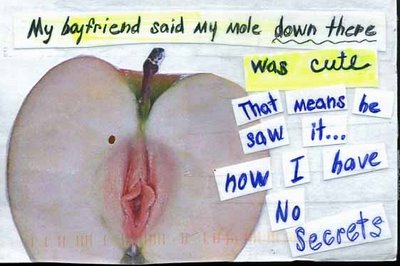 My boyfriend said my mole down there
was cute
That means he
saw it...
now I have
No
Secrets